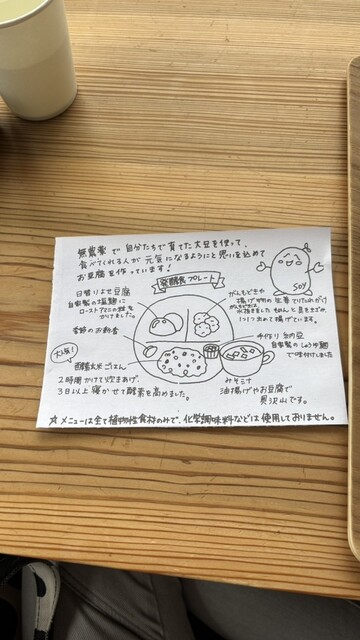 無農薬で自分たちで育てた大豆を使って、
食べてくれる人が元気になるようにと思いを込めて
お豆腐を作っています!
発酵食プレート
SOY
日替りよせ豆腐
自家製の塩麹に
ローストアマニの
かけました。
季節のお料理
がんもどきや
揚げ物の
水抜きをした
1つ1つ丸めて揚げています。
手作り納豆
自家製のしょうゆ麹
で味付けしました
大人気!
酵素玄米ごはん
2時間かけて炊きあげ、
3日以上寝かせて酵素を高めました。
みそ汁
油揚げやお豆腐で
具沢山です。
☆メニューは全て植物性食材のみで、化学調味料などは使用しておりません。